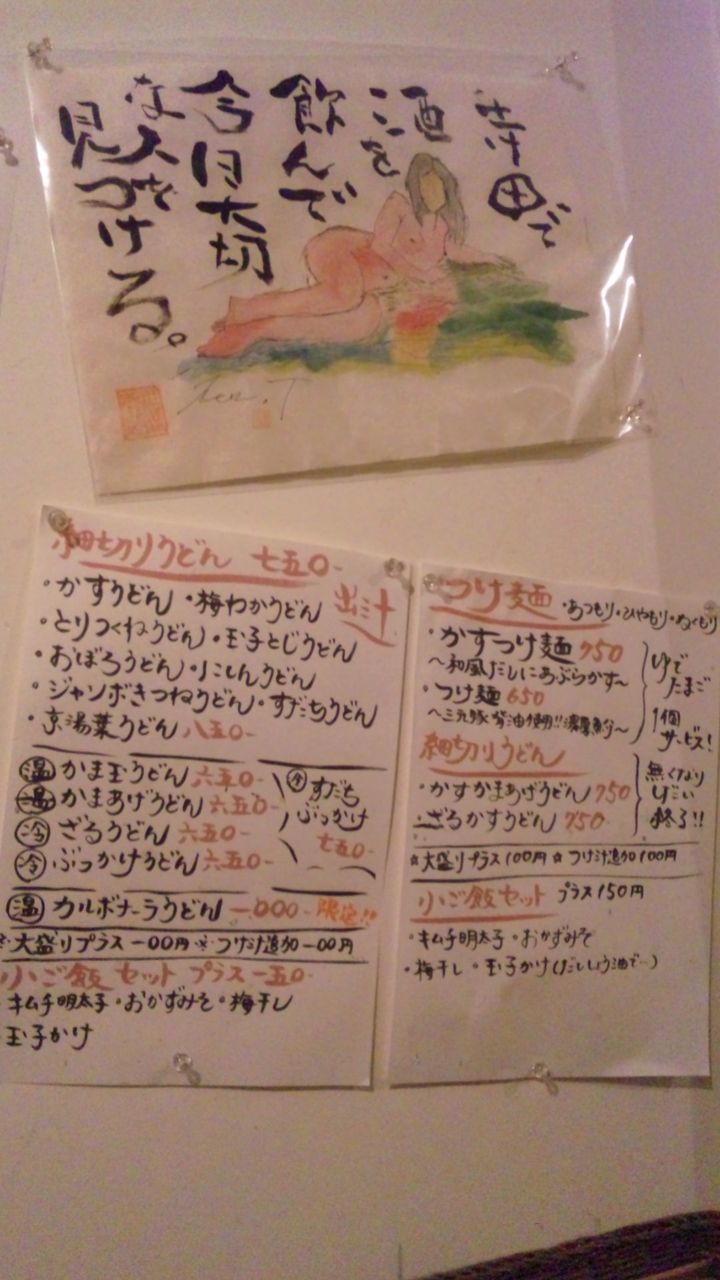 酒を
飲んで
今日大切
な人を
見つける。
細切りうどん 七五〇-
出汁
・かすうどん ・梅わかうどん
・とりつくねうどん ・玉子とじうどん
・おぼろうどん ・にしんうどん
・ジャンボきつねうどん ・すだちうどん
・京湯葉うどん 八五〇-
温 かま玉うどん 六五〇-
温 かまあげうどん 六五〇-
冷 ざるうどん 六五〇-
冷 ぶっかけうどん 六五〇-
冷 すだち
ぶっかけ
七五〇-
温 カルボナーラうどん 一〇〇〇- 限定!!
※大盛りプラス一〇〇円 ※つけ汁追加一〇〇円
小ご飯セット プラス一五〇-
・キムチ明太子 ・おかずみそ ・梅干し
・玉子かけ
つけ麺 ・あつもり・ひやもり・ぬくもり
・かすつけ麺 750
〜和風だしにあぶらかす〜
・つけ麺 650
〜三元豚背油使用!!濃厚〜
ゆで
たまご
1個
サービス!
細切りうどん
・かすかまあげうどん 750
・ざるかすうどん 750-
無くなり
しだい
終了!!
☆大盛りプラス100円 ☆つけ汁追加100円
小ご飯セット プラス150円
・キムチ明太子 ・おかずみそ
・梅干し ・玉子かけ(だししょう油で…)